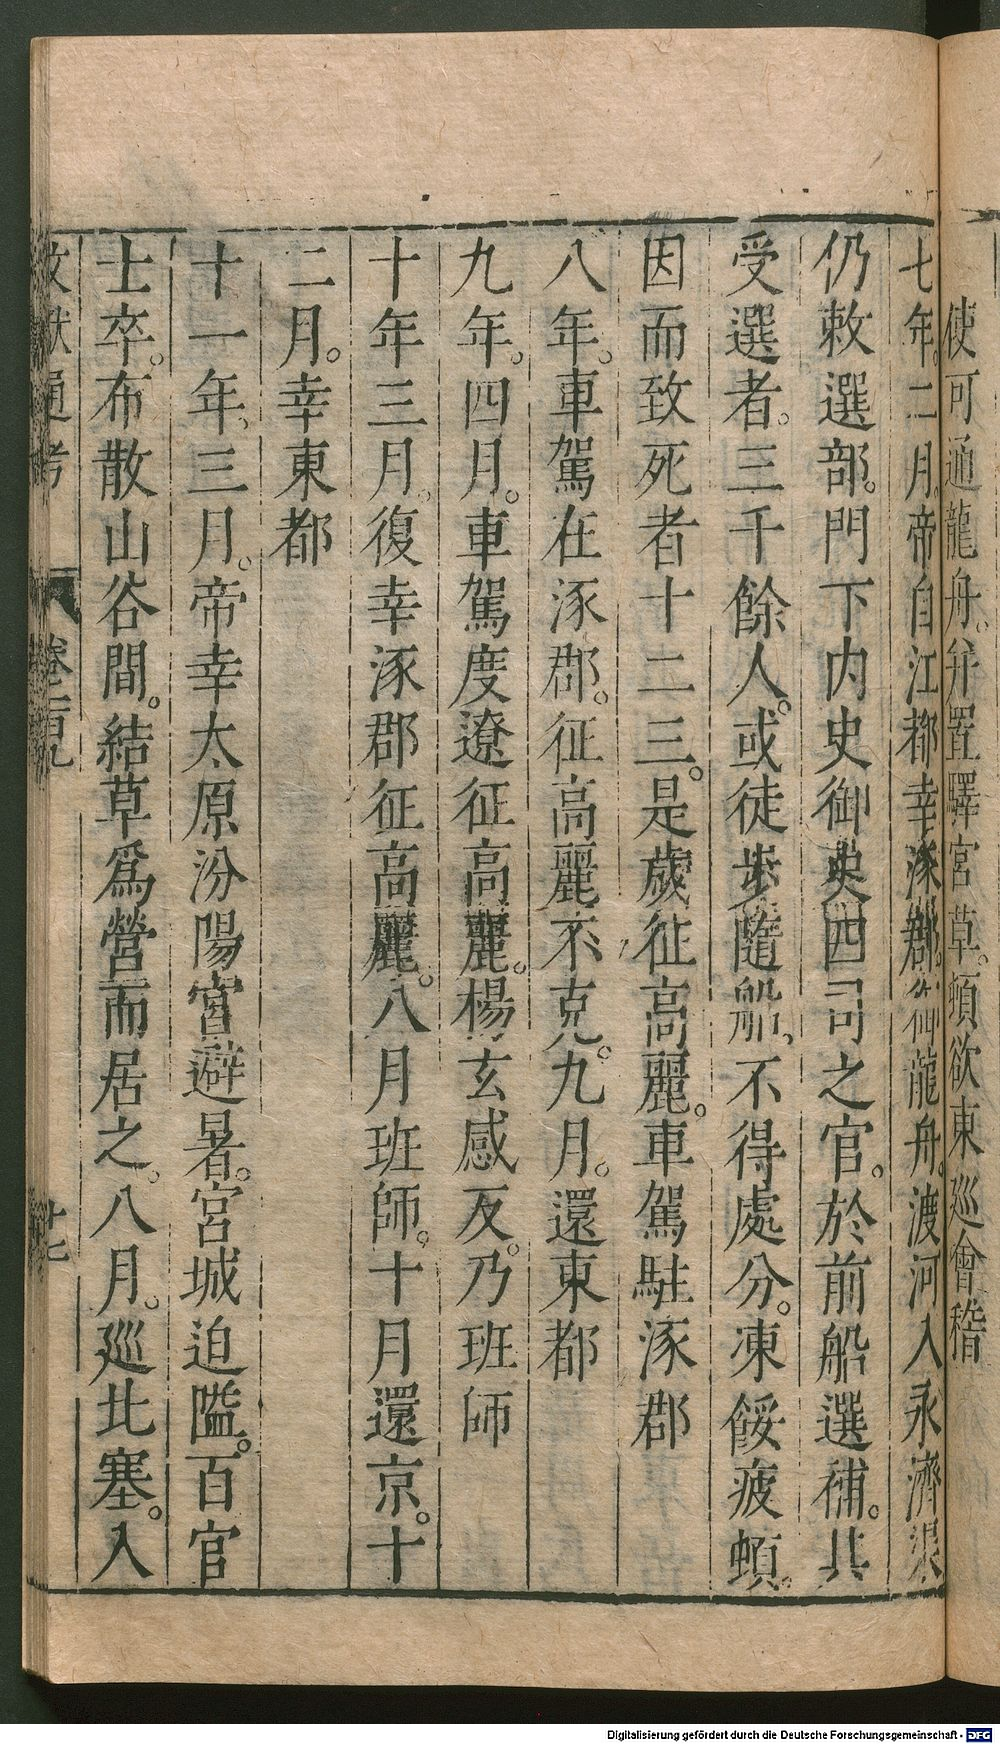 使可通龍舟。并置驛宮草。頓欲東廵會稽
七年。二月。帝自江都幸涿郡。御龍舟。渡河入永濟渠
仍敕選部。門下内史御史四司之官。於前船選補。其
受選者。三千餘人。或徒步隨船。不得處分。凍餒疲頓。
因而致死者十二三。是歲征高麗。車駕駐涿郡
八年。車駕在涿郡。征高麗不克。九月。還東都
九年。四月。車駕度遼征高麗。楊玄感反。乃班師
十年三月。復幸涿郡征高麗。八月班師。十月還京。十
二月。幸東都
十一年。三月。帝幸太原汾陽宮避暑。宮城迫隘。百官
士卒。布散山谷間。結草爲營而居之。八月。廵北塞。入
文獻通考 卷一百九 廿七
Digitalisierung gefördert durch die Deutsche Forschungsgemeinschaft - DFG